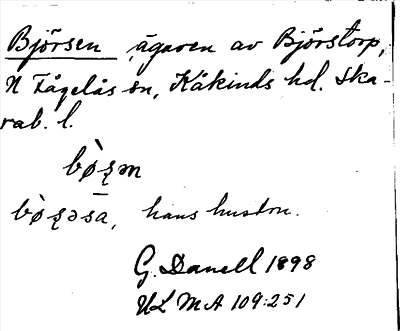 Björsen, ägaren av Björstorp,
N Fågelås sn, Kåkinds hd. Ska-
rab. l.
hans hustru.
G. Danell 1898
ULMA 109:251